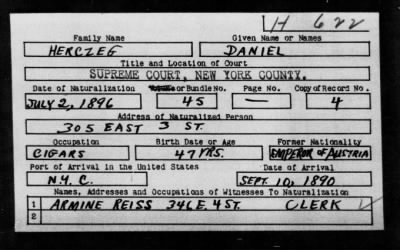 H 622
Family Name Given Name or Names
HERCZEG DANIEL
Title and Location of Court
SUPREME COURT, NEW YORK COUNTY.
Date of Naturalization Volume or Bundle No. Page No. Copy of Record No.
JULY 2, 1896 45 — 4
Address of Naturalized Person
305 EAST 3 ST.
Occupation Birth Date or Age Former Nationality
CIGARS 47 YRS. EMPEROR OF AUSTRIA
Port of Arrival in the United States Date of Arrival
N.Y.C. SEPT. 10, 1890
Names, Addresses and Occupations of Witnesses To Naturalization
1 ARMINE REISS 346 E. 4 ST. CLERK
2